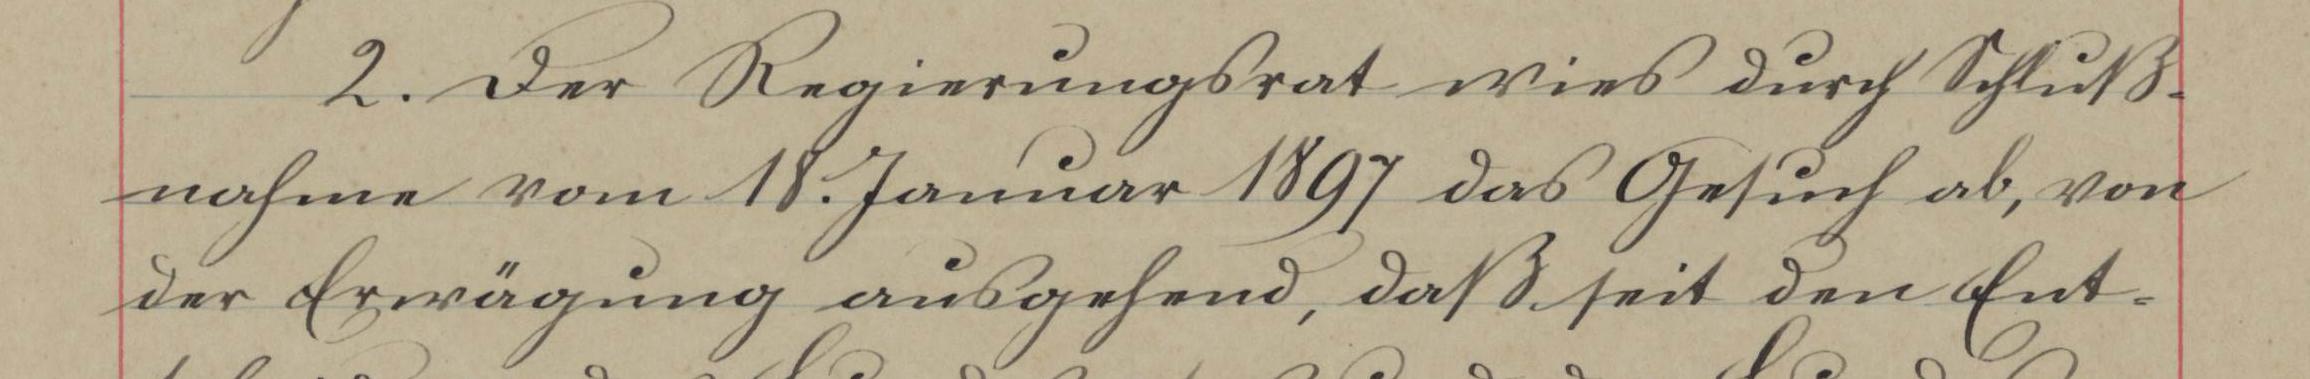 2. Der Regierungsrat wies durch Schluß-
nahme vom 18. Januar 1897 das Gesuch ab, von
der Erwägung ausgehend, daß seit den Ent-